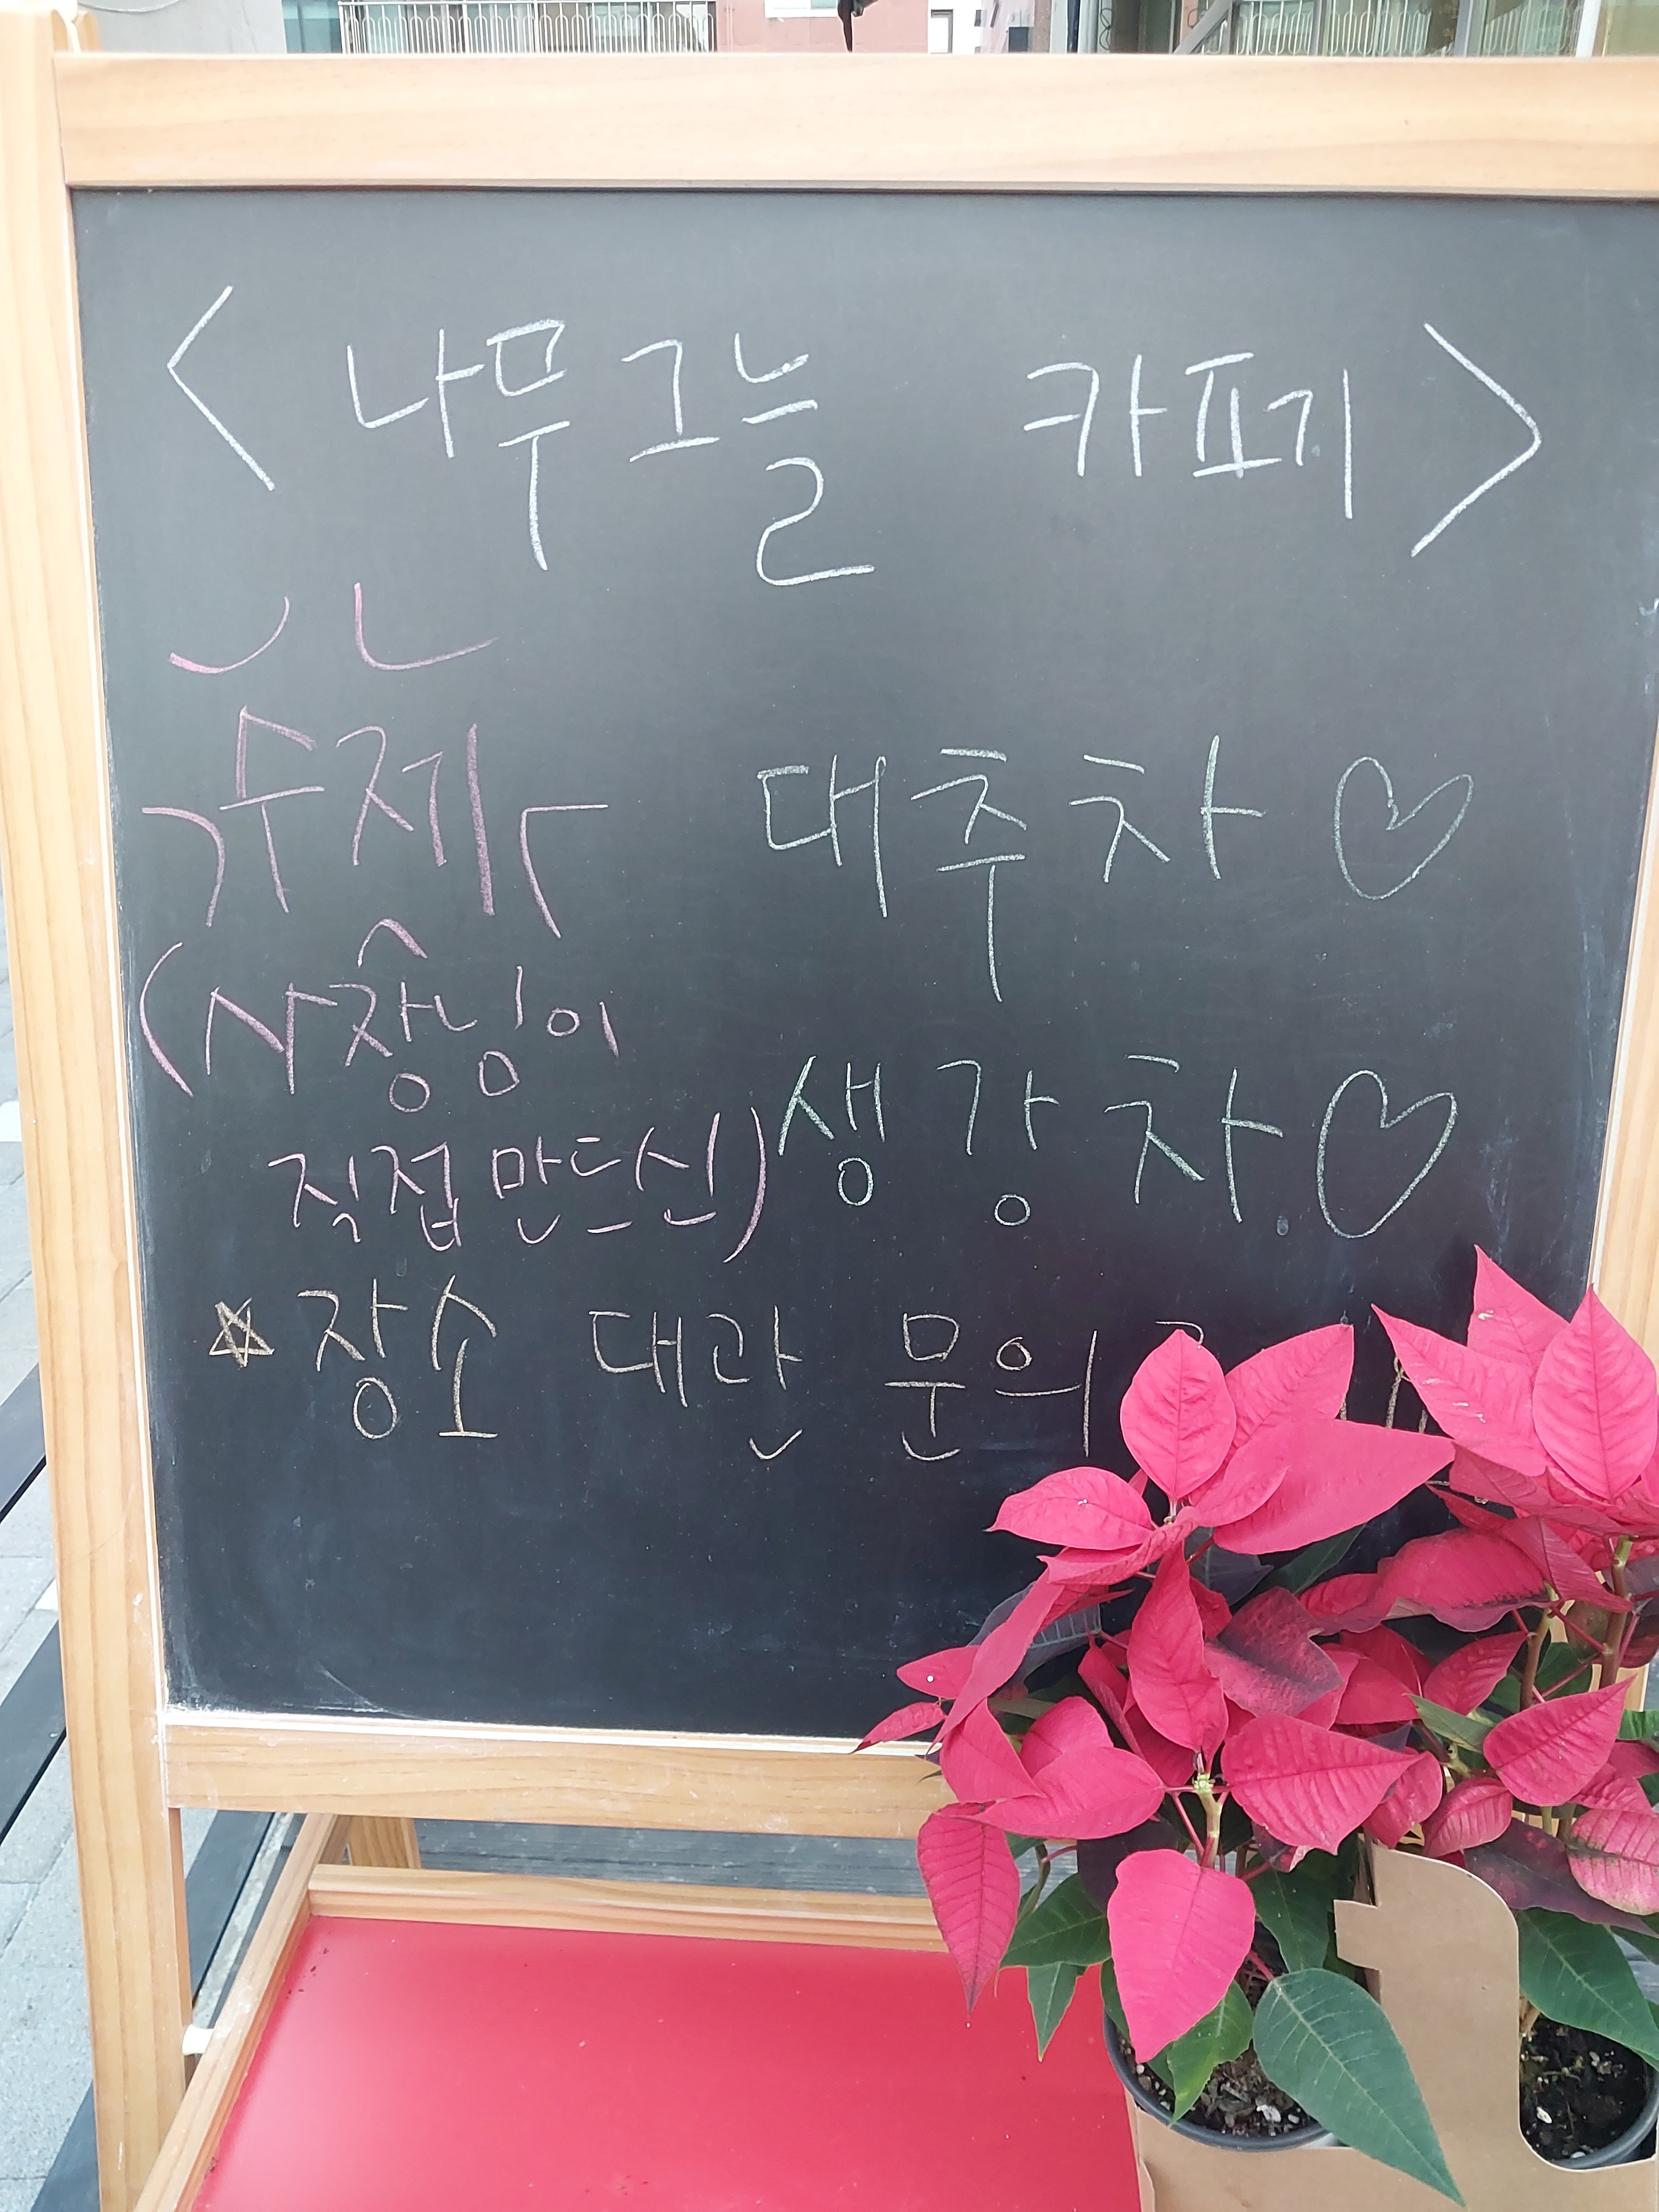 < 나무그늘 카페 >
수제 대추차 ♡
(사장님이
직접 만드신) 생강차 ♡
☆ 장소 대관 문의